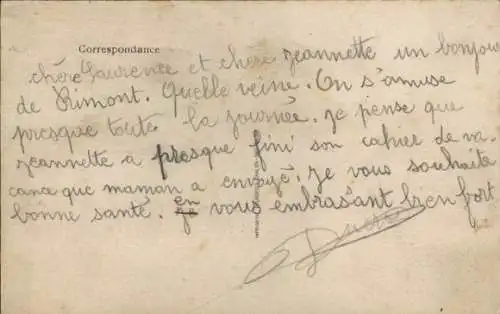 Correspondance
chère Laurence et chère jeannette un bonjour
de Rimont. Quelle veine. On s'amuse
presque toute la journée. je pense que
jeannette a presque fini son cahier de va
cana que maman a envoyé. je vous souhaite
bonne santé. en vous embrasant bien fort